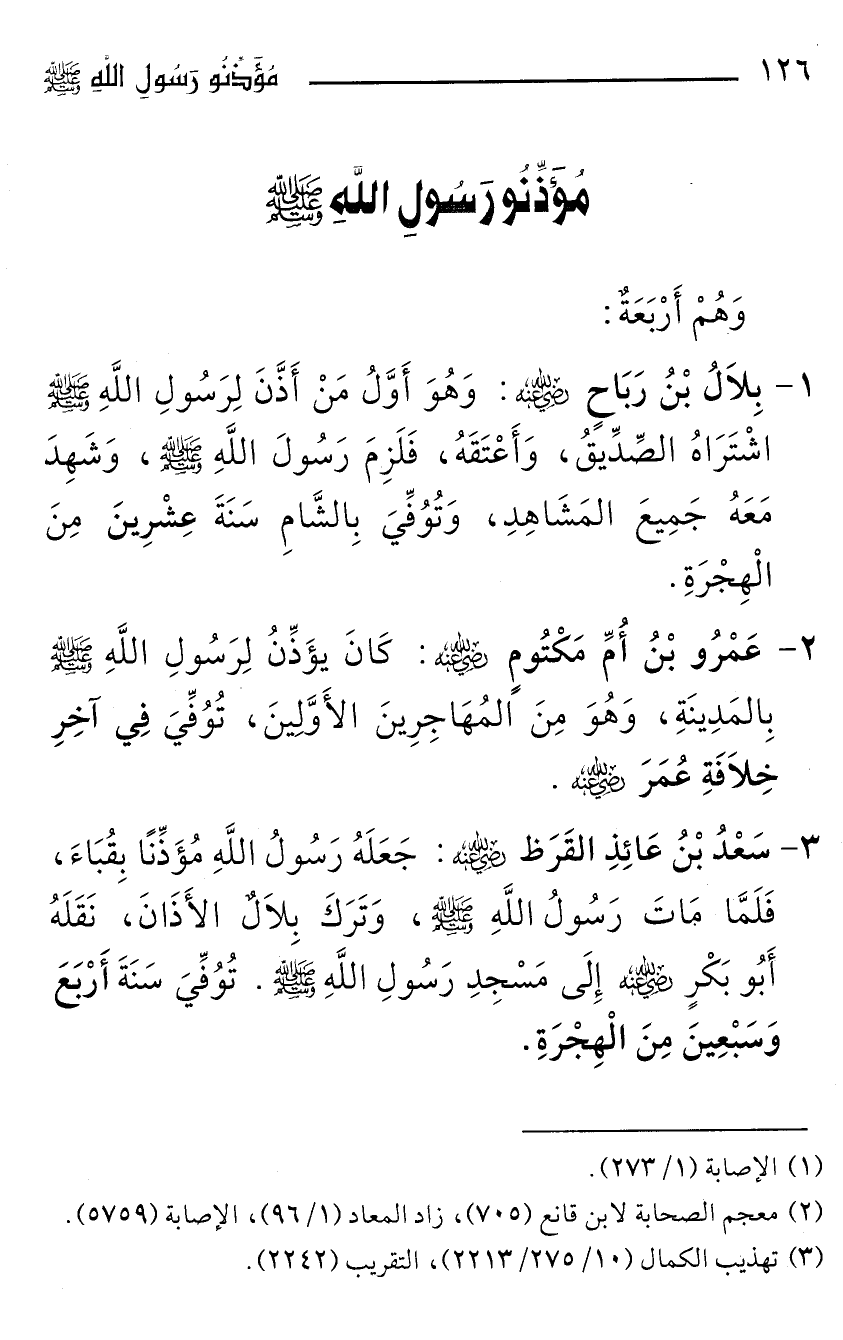 ١٢٦ مُؤَذِّنُو رَسُولِ اللَّهِ ﷺ
مُؤَذِّنُو رَسُولِ اللَّهِ ﷺ
وَهُمْ أَرْبَعَةٌ:
١- بِلَالُ بْنُ رَبَاحٍ رضي الله عنه: وَهُوَ أَوَّلُ مَنْ أَذَّنَ لِرَسُولِ اللَّهِ ﷺ
اشْتَرَاهُ الصِّدِّيقُ، وَأَعْتَقَهُ، فَلَزِمَ رَسُولَ اللَّهِ ﷺ، وَشَهِدَ
مَعَهُ جَمِيعَ المَشَاهِدِ، وَتُوُفِّيَ بِالشَّامِ سَنَةَ عِشْرِينَ مِنَ
الْهِجْرَةِ.
٢- عَمْرُو بْنُ أُمِّ مَكْتُومٍ رضي الله عنه: كَانَ يؤَذِّنُ لِرَسُولِ اللَّهِ ﷺ
بِالمَدِينَةِ، وَهُوَ مِنَ المُهَاجِرِينَ الأَوَّلِينَ، تُوُفِّيَ فِي آخِرِ
خِلَافَةِ عُمَرَ رضي الله عنه.
٣- سَعْدُ بْنُ عَائِذِ القَرَظ رضي الله عنه: جَعَلَهُ رَسُولُ اللَّهِ مُؤَذِّنًا بِقُبَاءَ،
فَلَمَّا مَاتَ رَسُولُ اللَّهِ ﷺ، وَتَرَكَ بِلَالٌ الأَذَانَ، نَقَلَهُ
أَبُو بَكْرٍ رضي الله عنه إِلَى مَسْجِدِ رَسُولِ اللَّهِ ﷺ. تُوُفِّيَ سَنَةَ أَرْبَعَ
وَسَبْعِينَ مِنَ الْهِجْرَةِ.
(١) الإصابة (١/ ٢٧٣).
(٢) معجم الصحابة لابن قانع (٧٠٥)، زاد المعاد (١/ ٩٦)، الإصابة (٥٧٥٩).
(٣) تهذيب الكمال (١٠/ ٢٧٥/ ٢٢١٣)، التقريب (٢٢٤٢).